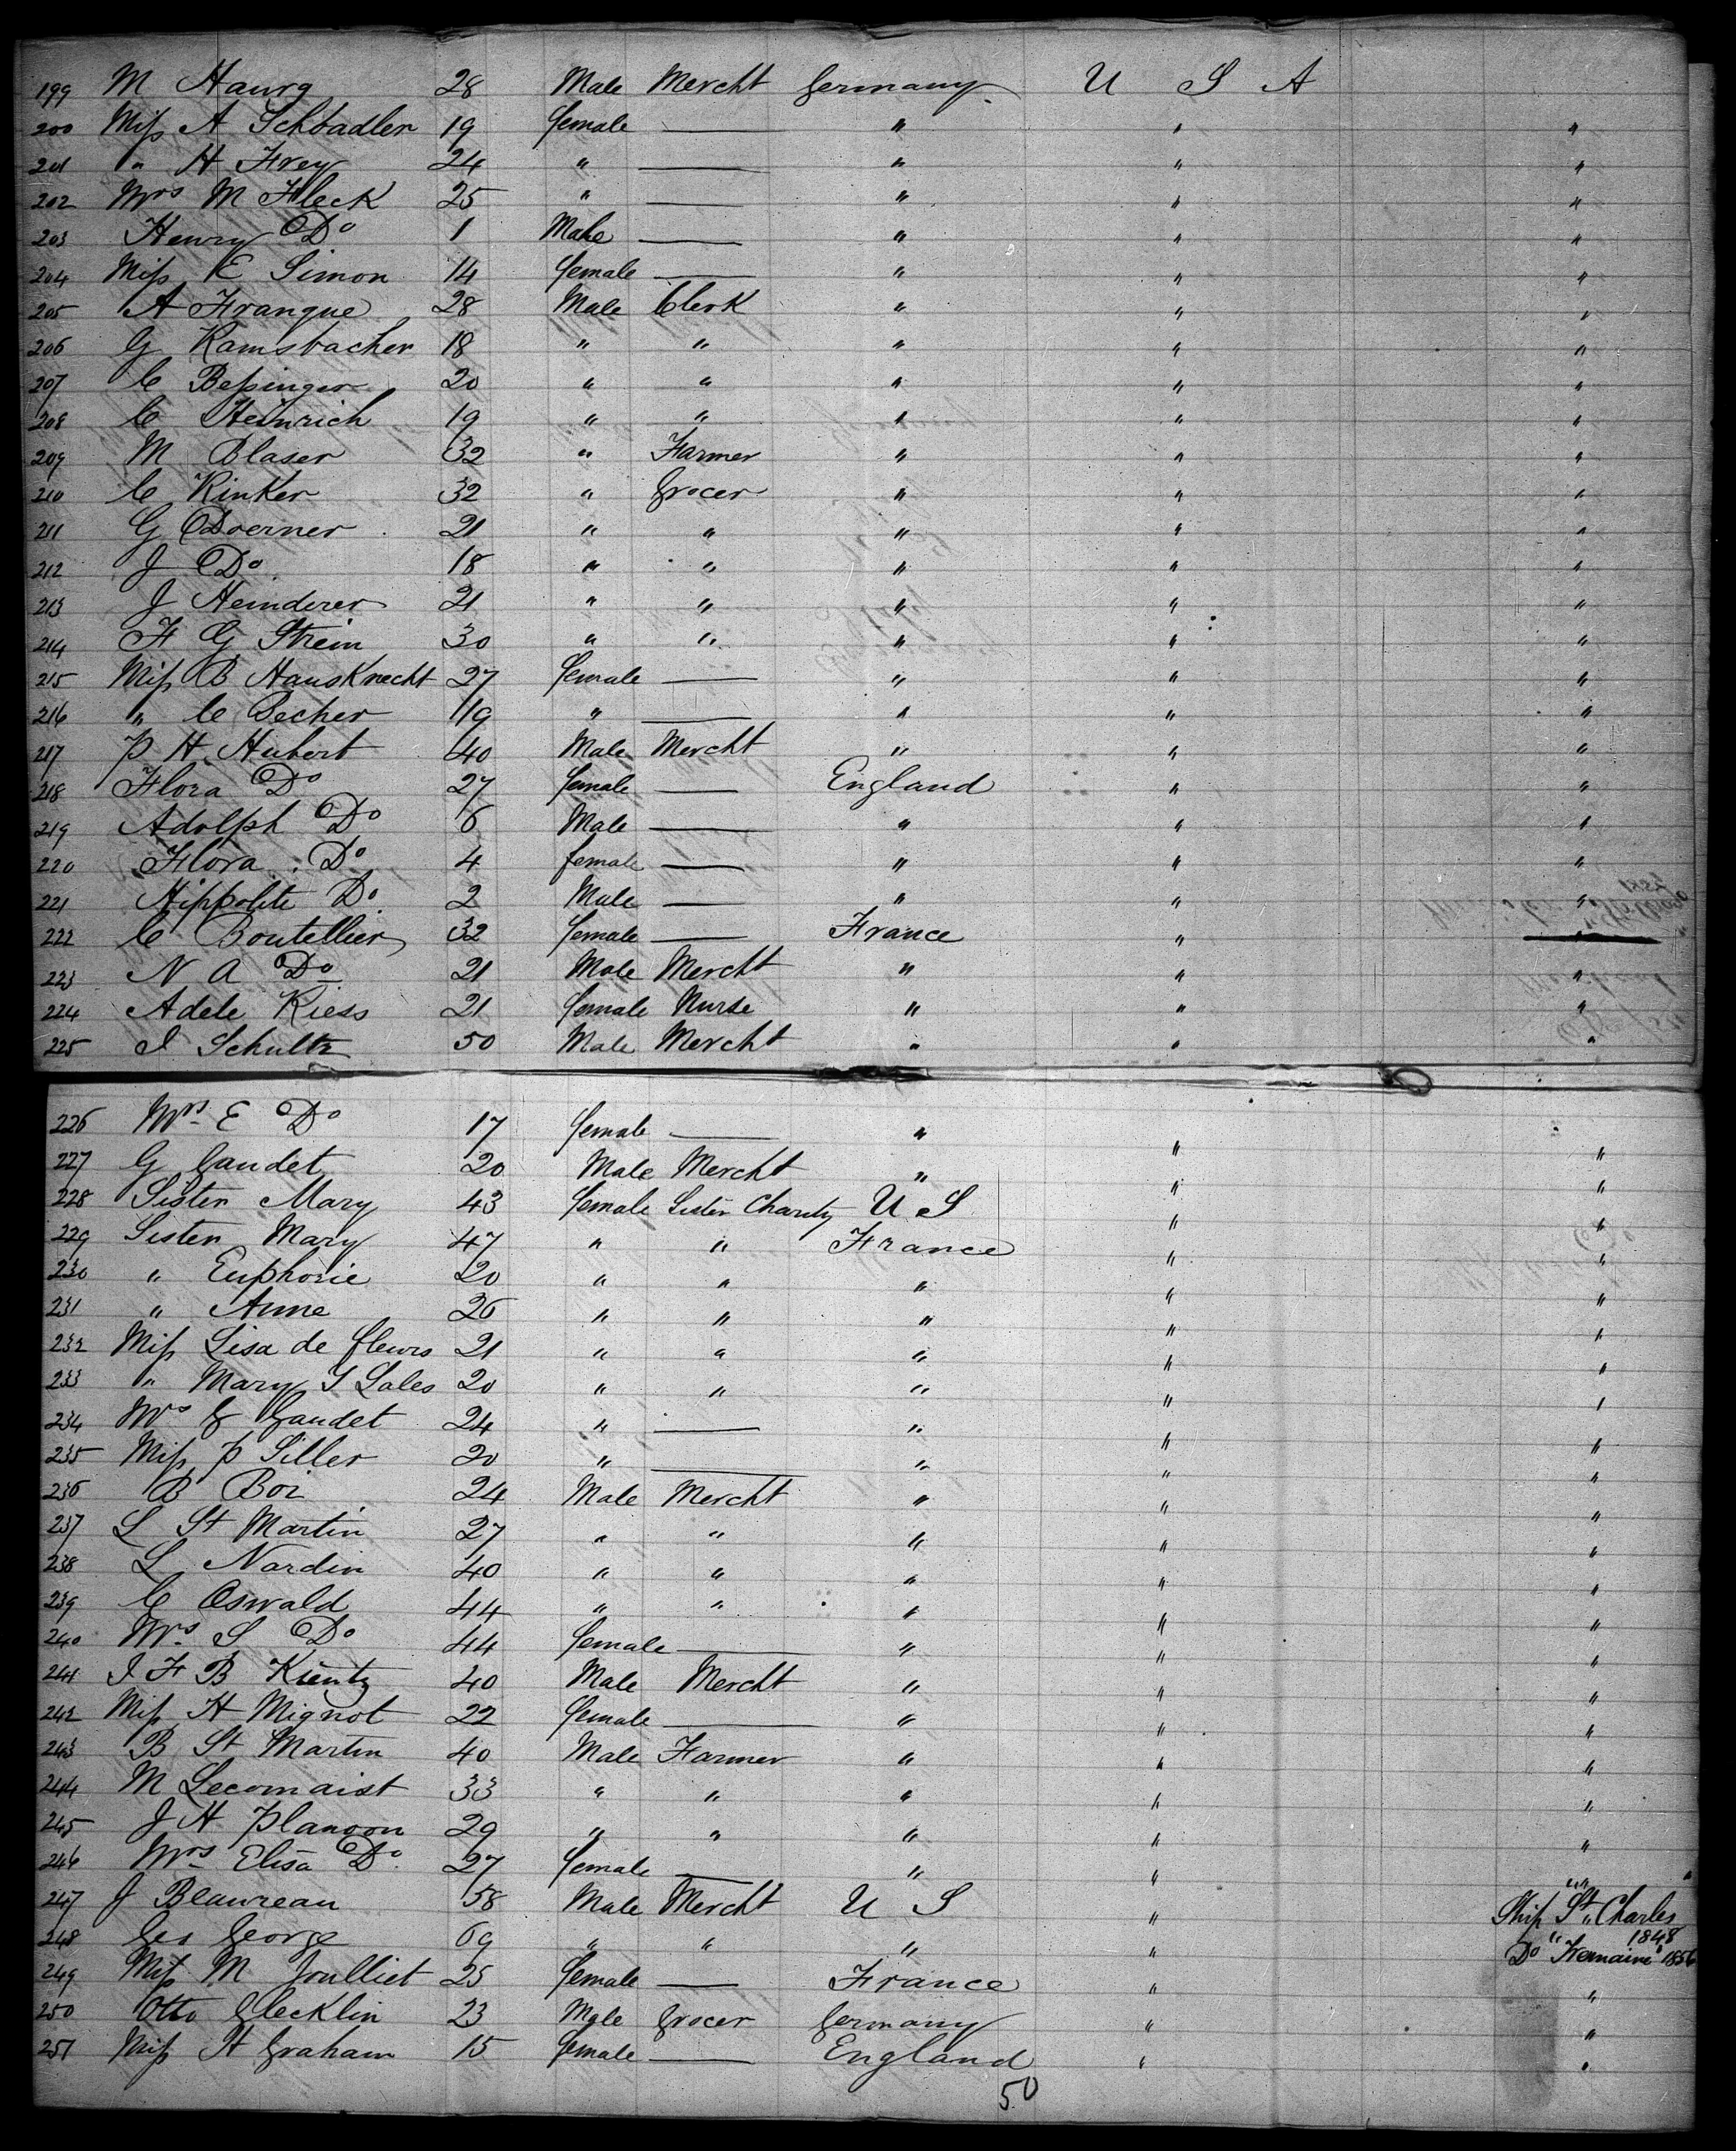 199 M Haurg 28 Male Mercht Germany U S A
200 Miss A Schbadler 19 female — " " "
201 " H Frey 24 " — " " "
202 Mrs M Fleck 25 " — " " "
203 Henry Do 1 Male — " " "
204 Miss E Simon 14 female — " " "
205 A Franque 28 Male Clerk " " "
206 G Ramsbacher 18 " " " " "
207 C Bessinger 20 " " " " "
208 C Heinrich 19 " " " " "
209 M Blaser 32 " Farmer " " "
210 C Rinker 32 " Grocer " " "
211 G Doerner 21 " " " " "
212 J Do 18 " " " " "
213 J Heinderer 21 " " " " "
214 F G Strein 30 " " " " "
215 Miss B HausKnecht 27 female — " " "
216 " C Becher 19 " — " " "
217 P H Hubert 40 Male Mercht " " "
218 Flora Do 27 female — England " "
219 Adolph Do 6 Male — " " "
220 Flora Do 4 female — " " "
221 Hippolite Do 2 Male — " " "
222 C Boutellier 32 female — France " "
223 N A Do 21 Male Mercht " " "
224 Adele Kiess 21 female Nurse " " "
225 I Schultz 50 Male Mercht " " "
226 Mrs E Do 17 female — " " "
227 G Gaudet 20 Male Mercht " " "
228 Sister Mary 43 female Sister Charity U S " "
229 Sister Mary 47 " " France " "
230 " Euphorie 20 " " " " "
231 " Anne 26 " " " " "
232 Miss Lisa de fleurs 21 " " " " "
233 " Mary S Sales 20 " " " " "
234 Mrs G Gaudet 24 " — " " "
235 Miss P Siller 20 " — " " "
236 B Boi 24 Male Mercht " " "
237 L St Martin 27 " " " " "
238 L Nardin 40 " " " " "
239 C Oswald 44 " " " " "
240 Mrs S Do 44 female — " " "
241 I F B Kientz 40 Male Mercht " " "
242 Miss H Mignot 22 female — " " "
243 B St Martin 40 Male Farmer " " "
244 M Lecomaist 33 " " " " "
245 J H Plancon 29 " " " " "
246 Mrs Elisa Do 27 female — " " "
247 J Beaureau 58 Male Mercht U S " Ship St Charles 1848
248 Geo George 69 " " " " Do " 1856
249 Miss M Joulliet 25 female — France " "
250 Otto Glecklin 23 Male Grocer Germany " "
251 Miss H Graham 15 female — England " "
50